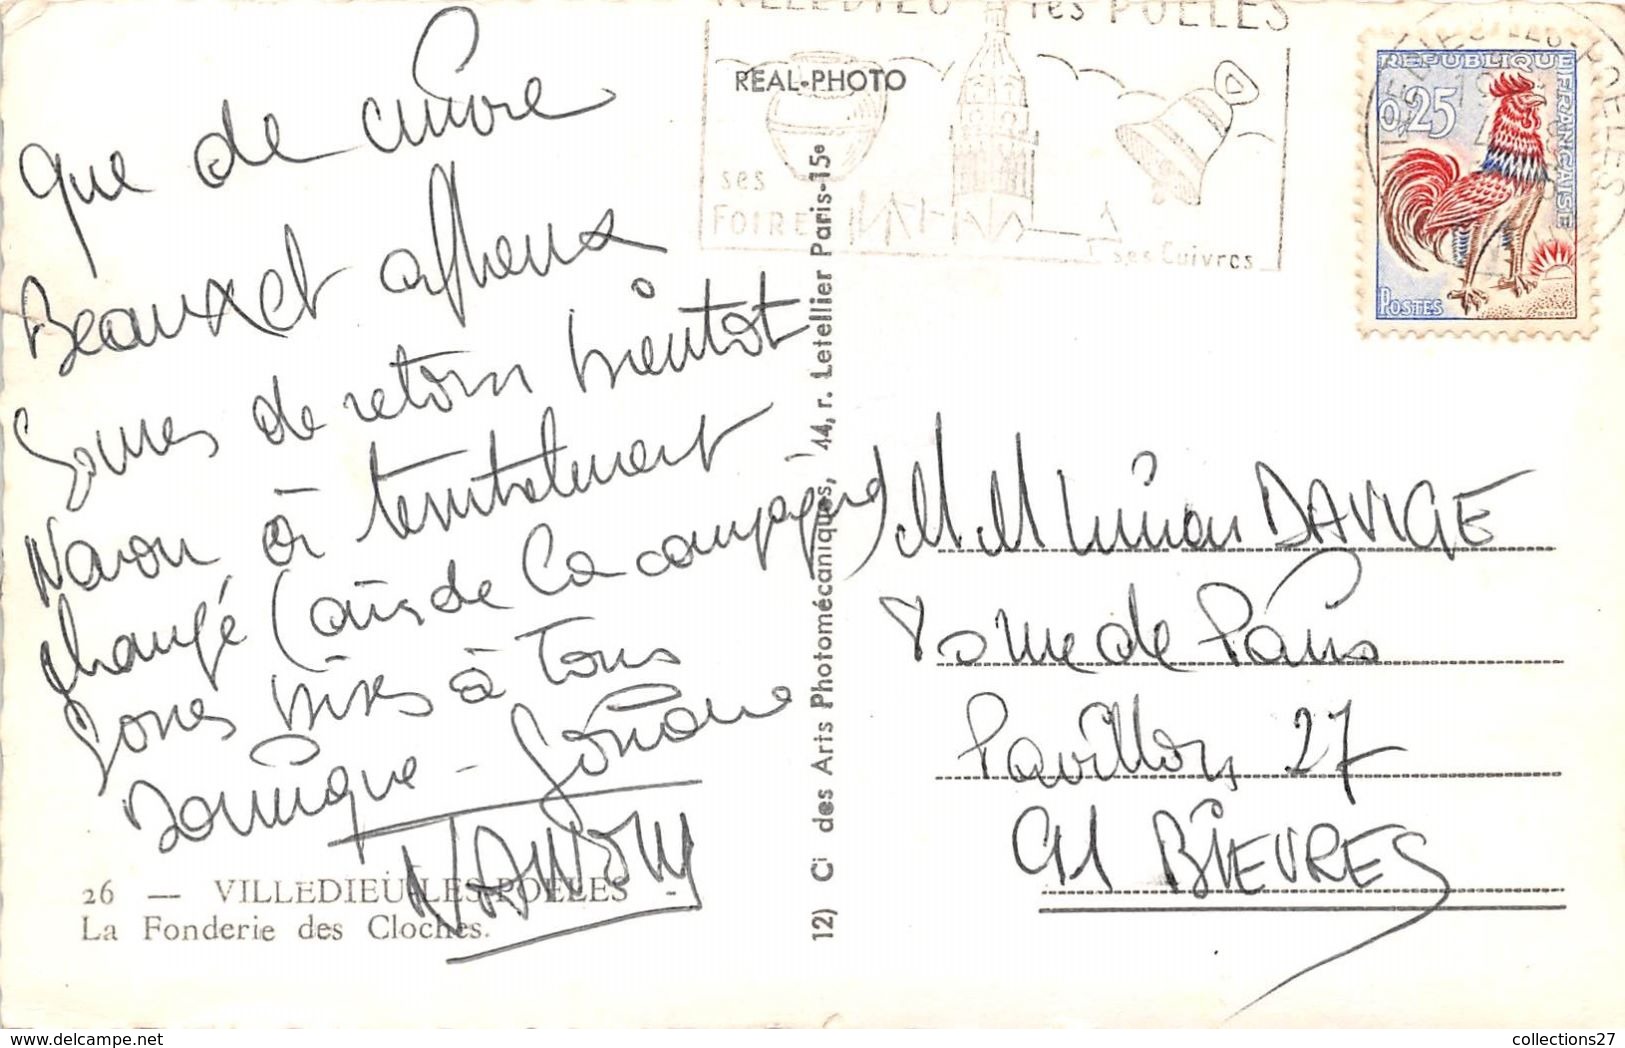 VILLEDIEU les POELES
REAL-PHOTO
ses
FOIRE
ses Cuivres
REPUBLIQUE FRANÇAISE
0,25
POSTES
DECARIS
que de cuivre
Beaux et affreux
Sommes de retour bientôt
Navon à
changé (air de la campagne)
Bises à Tous
Dominique -
M. M DAVIGE
rue de Paris
Pavillon 27
91 BIEVRES
26 — VILLEDIEU-LES-POELES -
La Fonderie des Cloches.
12) Ci des Arts Photomécaniques, 44, r. Letellier Paris-15e
collections27